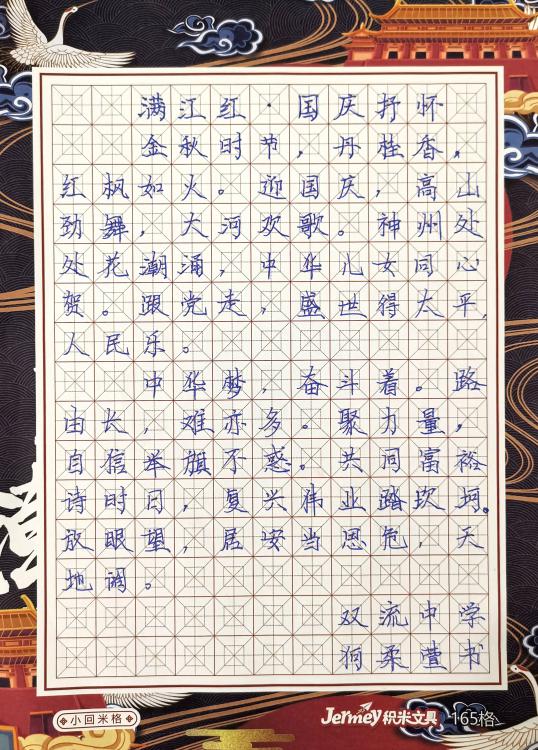 满江红·国庆抒怀
金秋时节,丹桂香,
红枫如火。迎国庆,高山
劲舞,大河欢歌。神州处
处花潮涌,中华儿女同心
贺。跟党走,盛世得太平,
人民乐。
中华梦,奋斗着。路
由长,难亦多。聚力量,
自信举旗不惑。共同富裕
诗时日,复兴伟业踏坎坷。
放眼望,居安当思危,天
地阔。
双流中学
柔萱书
小回米格
Jermey积米文具 165格